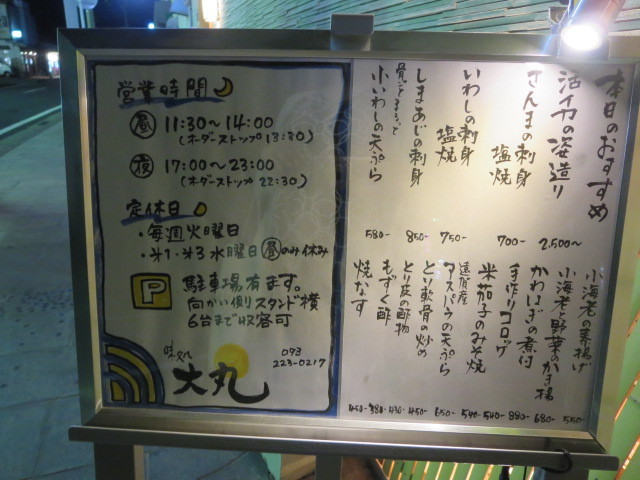 営業時間
昼 11:30〜14:00
(オーダーストップ 13:30)
夜 17:00〜23:00
(オーダーストップ 22:30)
定休日
・毎週火曜日
・第1・第3水曜日 昼のみ休み
P 駐車場有ます。
向かい側スタンド横
6台まで収容可
味処
大丸
093
223-0217
本日のおすすめ
活イカの姿造り 2,500〜
さんまの刺身 700-
塩焼
いわしの刺身 750-
塩焼
しまあじの刺身 850-
骨せんべい
小いわしの天ぷら 580-
小海老の素揚げ 550-
小海老と野菜のかき揚 680-
かわはぎの煮付 880-
手作りコロッケ 540-
米茄子のみそ焼 540-
遠賀産
アスパラの天ぷら 650-
とり軟骨の炒め 450-
とり皮の酢物 430-
もずく酢 380-
焼なす 450-